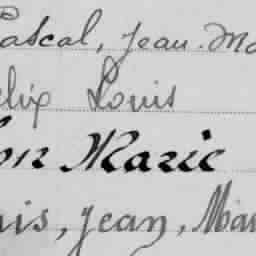 Pascal, Jean. Ma
elix Louis
on Marie
uis, Jean, Mar